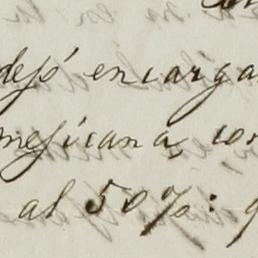 dejó encarga
mejicana, con
al 50%: q